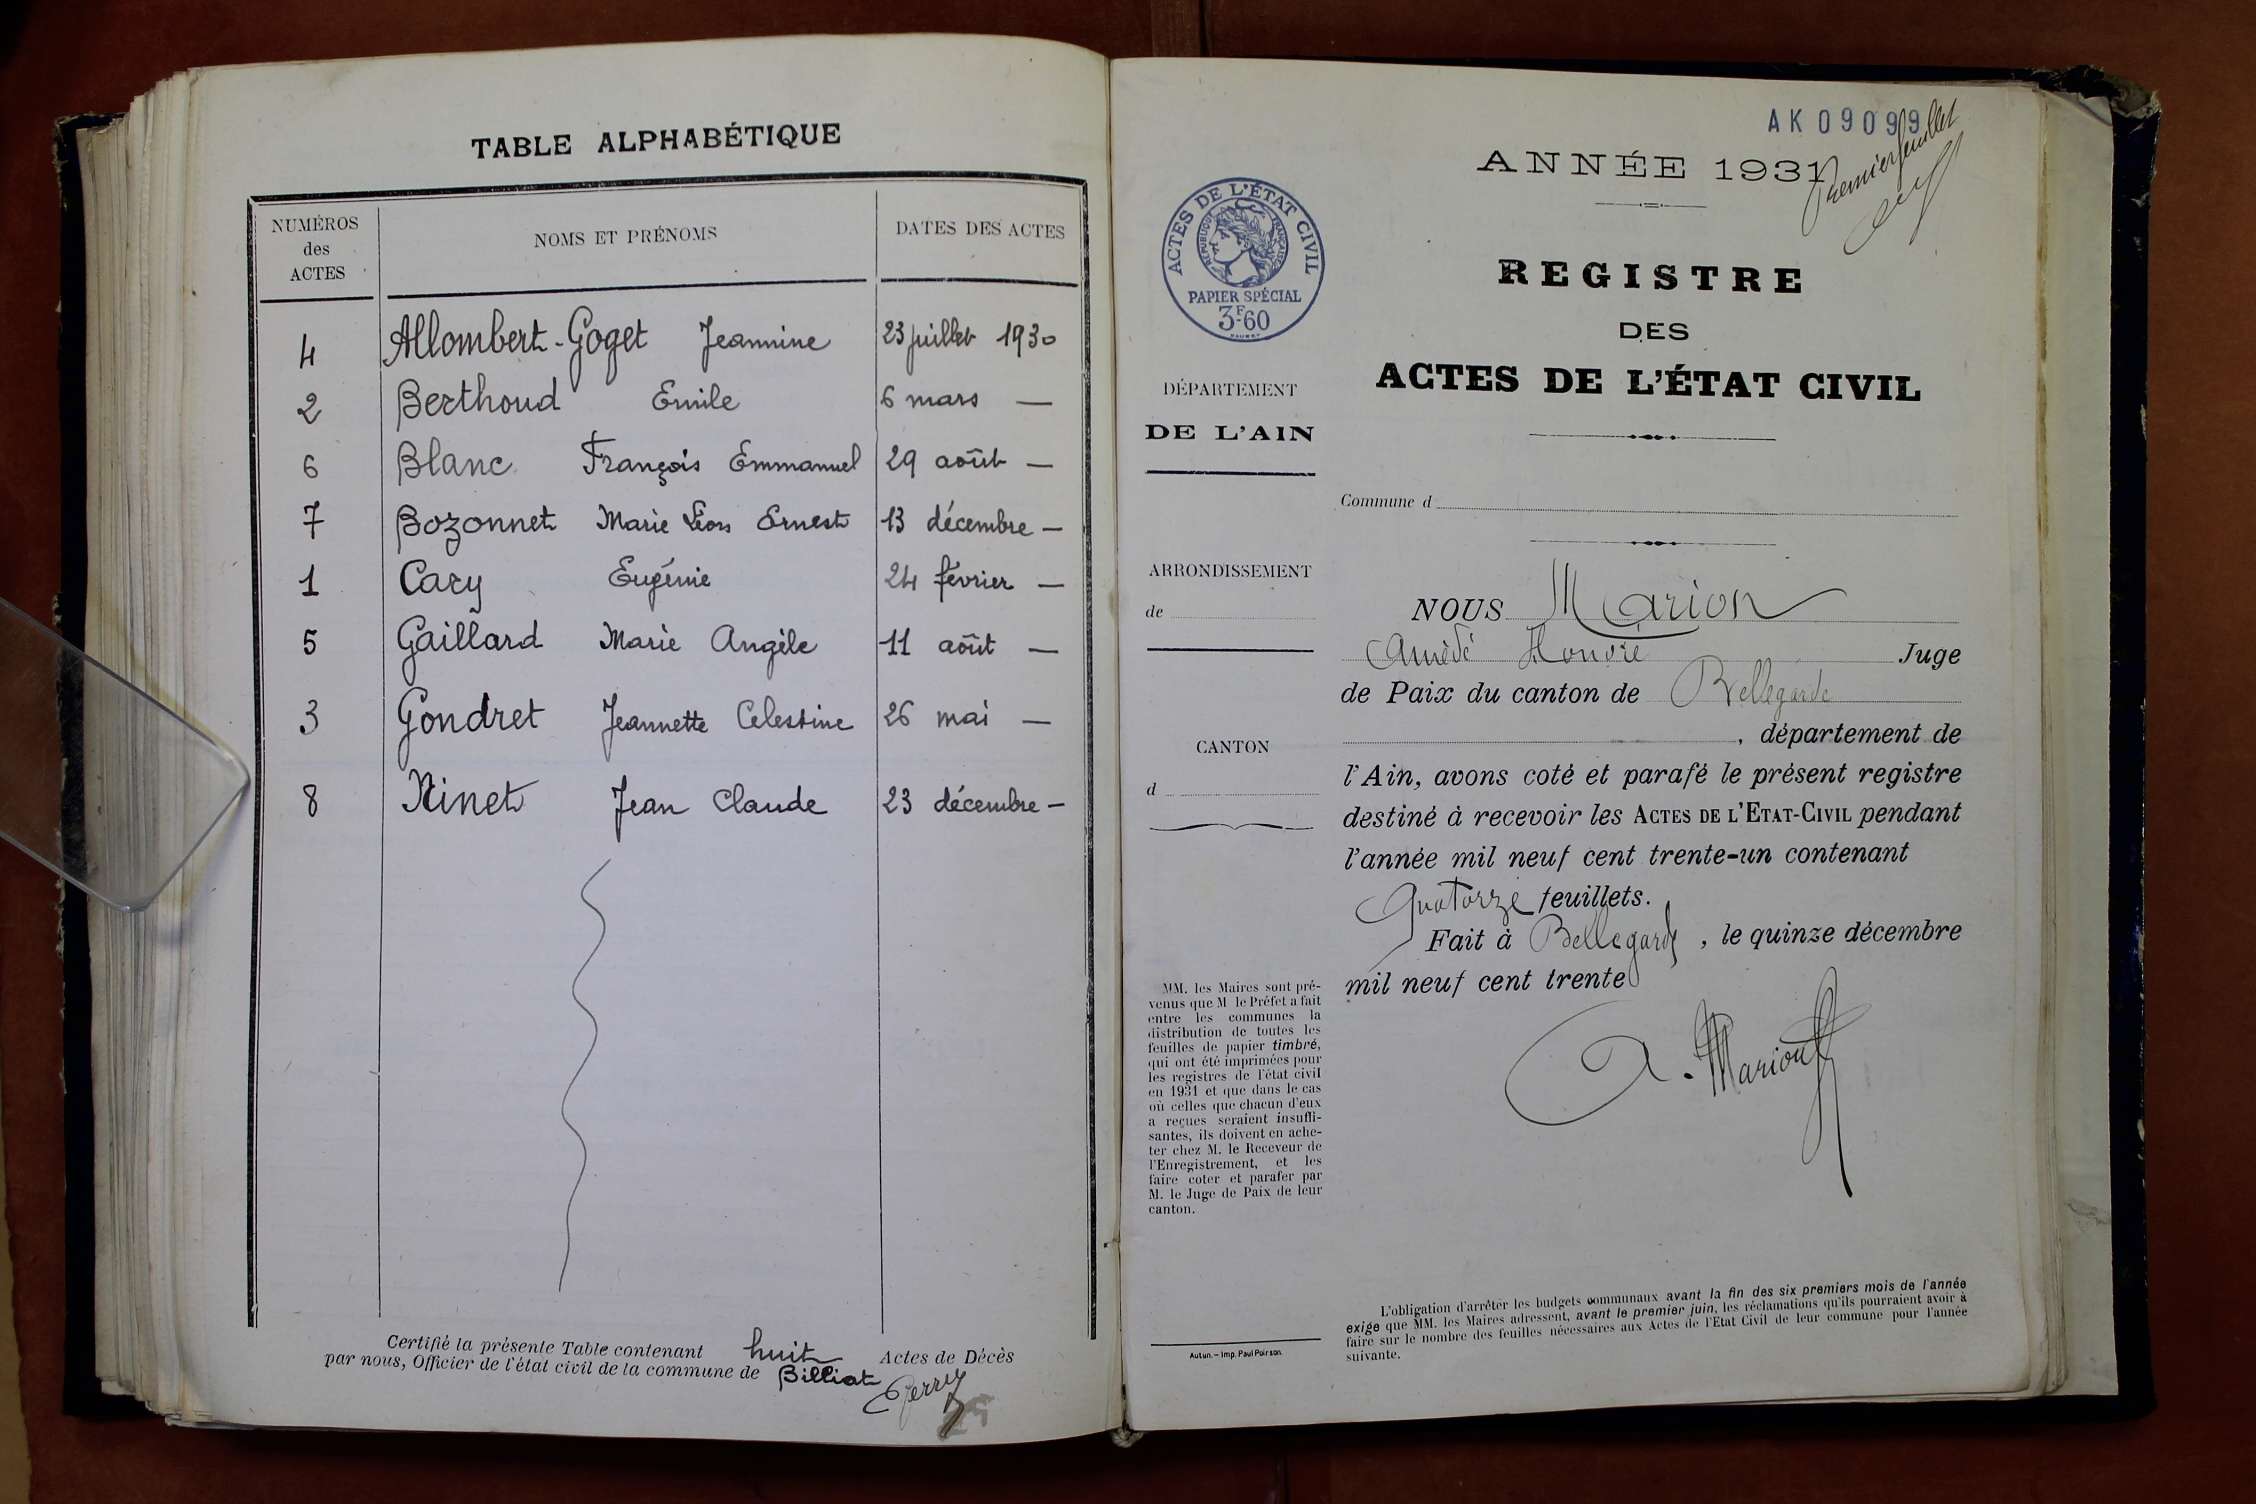 TABLE ALPHABÉTIQUE
NUMÉROS des ACTES | NOMS ET PRÉNOMS | DATES DES ACTES
4 Allombert-Goget Jeannine 23 juillet 1930
2 Berthoud Emile 6 mars —
6 Blanc François Emmanuel 29 août —
7 Bozonnet Marie Léon Ernest 13 décembre —
1 Cary Eugénie 24 février —
5 Gaillard Marie Angèle 11 août —
3 Gondret Jeannette Celestine 26 mai —
8 Ninet Jean Claude 23 décembre —
Certifié la présente Table contenant huit Actes de Décès
par nous, Officier de l'état civil de la commune de Billiat
AK 09099
Premier feuillet
ANNÉE 1931
ACTES DE L'ÉTAT CIVIL
RÉPUBLIQUE FRANÇAISE
PAPIER SPÉCIAL
3F-60
REGISTRE
DES
ACTES DE L'ÉTAT CIVIL
DÉPARTEMENT
DE L'AIN
ARRONDISSEMENT
de
CANTON
d
MM. les Maires sont pré-
venus que M le Préfet a fait
entre les communes la
distribution de toutes les
feuilles de papier timbré,
qui ont été imprimées pour
les registres de l'état civil
en 1931 et que dans le cas
où celles que chacun d'eux
a reçues seraient insuffi-
santes, ils doivent en ache-
ter chez M. le Receveur de
l'Enregistrement, et les
faire coter et parafer par
M. le Juge de Paix de leur
canton.
Autun. – Imp. Paul Poirson.
Commune d
NOUS Marion
Amédé Honoré Juge
de Paix du canton de Bellegarde
, département de
l'Ain, avons coté et parafé le présent registre
destiné à recevoir les ACTES DE L'ETAT-CIVIL pendant
l'année mil neuf cent trente-un contenant
Quatorze feuillets.
Fait à Bellegarde, le quinze décembre
mil neuf cent trente
A. Marion
L'obligation d'arrêter les budgets communaux avant la fin des six premiers mois de l'année
exige que MM. les Maires adressent, avant le premier juin, les réclamations qu'ils pourraient avoir à
faire sur le nombre des feuilles nécessaires aux Actes de l'Etat Civil de leur commune pour l'année
suivante.